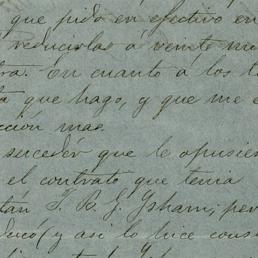 que pido en efectivo en
reducirlas a veinte mi
tra. En cuanto á los t
que hago, y que me e
cción mas.
suceder que le opusies
el contrato que tenia
tan J. B. G. Isham; per
ducó (y asi lo hice cons